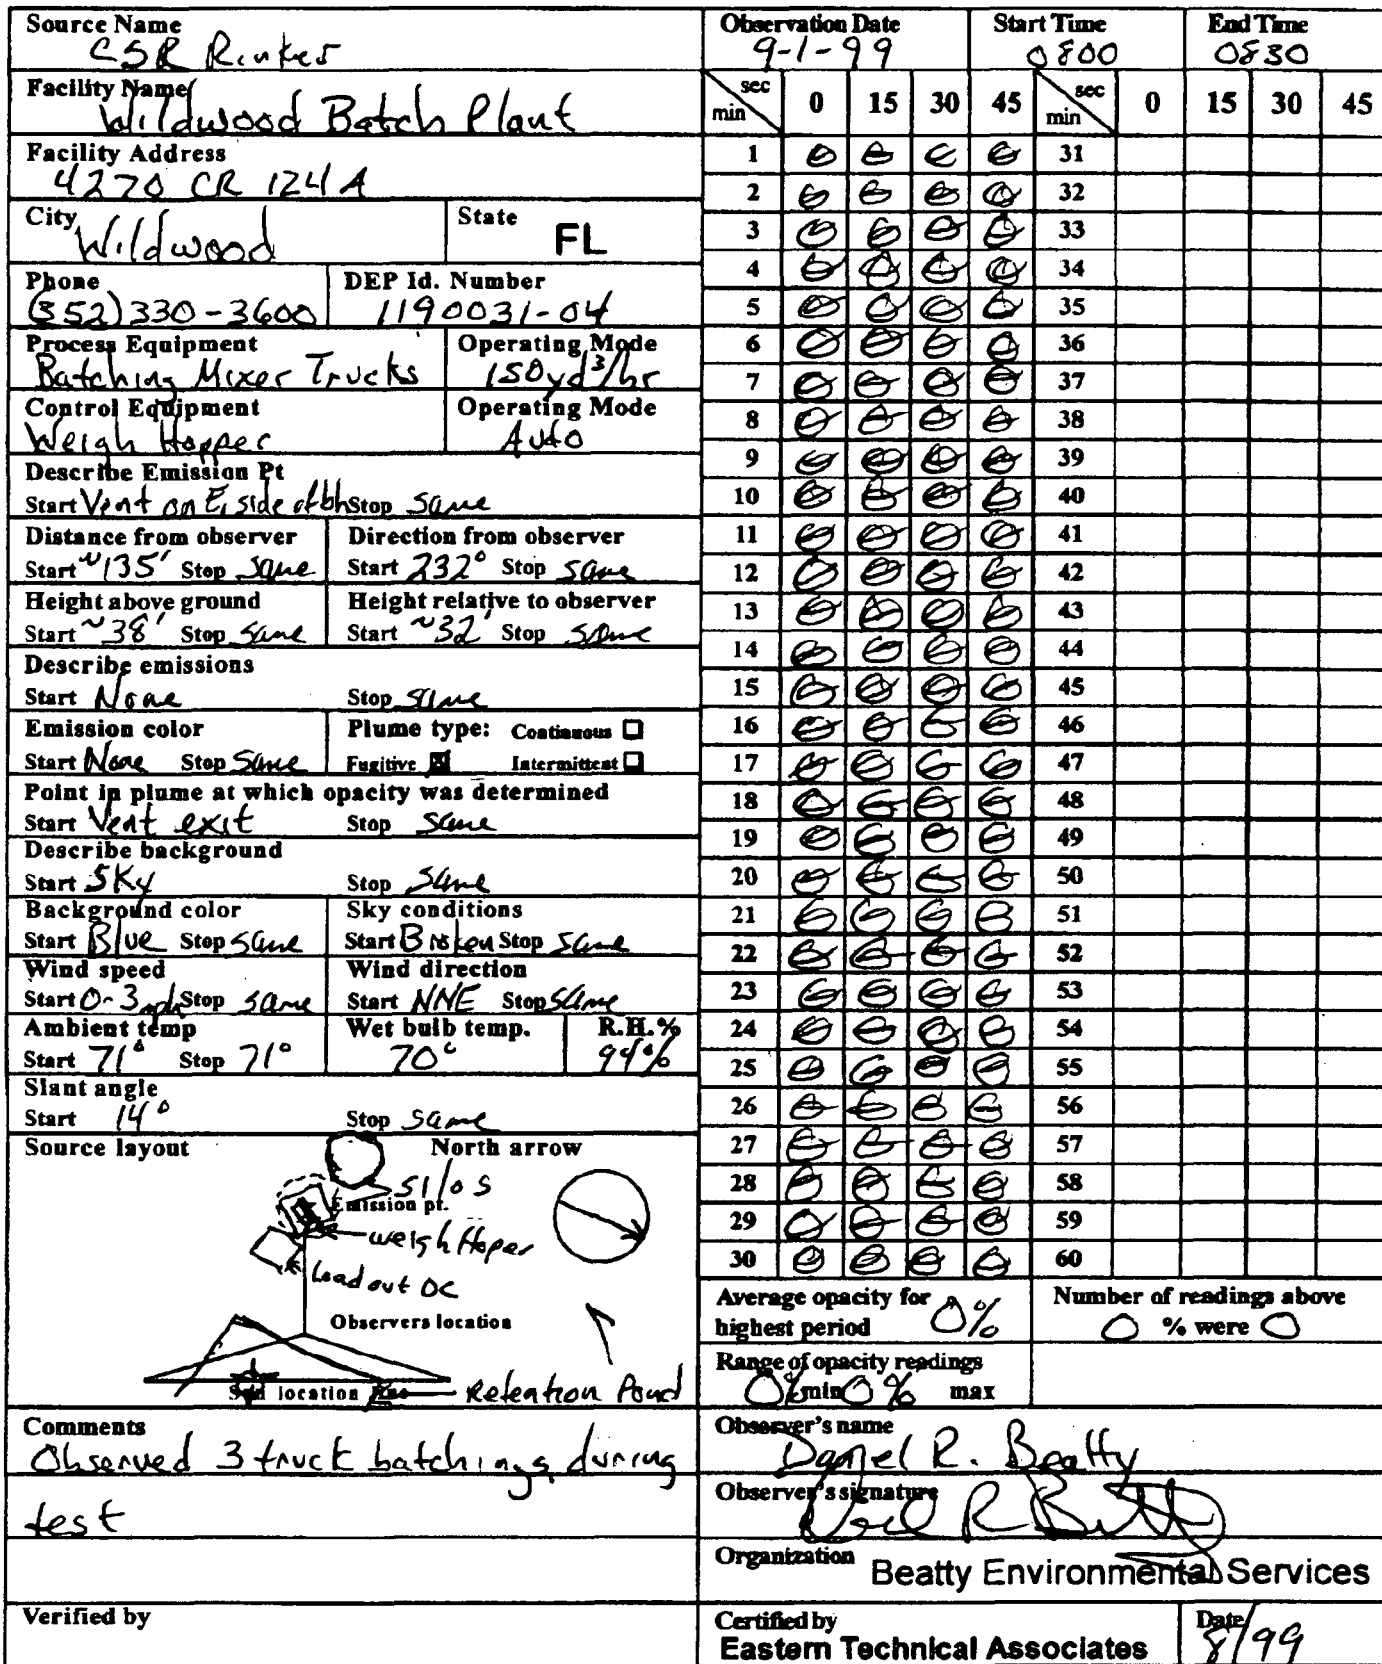 Source Name
CSR Rinker
Facility Name
Wildwood Batch Plant
Facility Address
4270 CR 124A
City Wildwood State FL
Phone (352)330-3600 DEP Id. Number 1190031-04
Process Equipment Batching Mixer Trucks Operating Mode 150yd³/hr
Control Equipment Weigh Hopper Operating Mode Auto
Describe Emission Pt
Start Vent on E. side of bh Stop same
Distance from observer Direction from observer
Start ~135' Stop same Start 232° Stop same
Height above ground Height relative to observer
Start ~38' Stop same Start ~32' Stop same
Describe emissions
Start None Stop same
Emission color Plume type: Continuous
Start None Stop same Fugitive Intermittent
Point in plume at which opacity was determined
Start Vent exit Stop same
Describe background
Start Sky Stop same
Background color Sky conditions
Start Blue Stop same Start Broken Stop same
Wind speed Wind direction
Start 0-3mph Stop same Start NNE Stop same
Ambient temp Wet bulb temp. R.H.%
Start 71° Stop 71° 70° 94%
Slant angle
Start 14° Stop same
Source layout North arrow
silos
Emission pt.
weigh Hoper
Load out DC
Observers location
location Retention Pond
Comments
Observed 3 truck batchings during
test
Verified by
Observation Date Start Time End Time
9-1-99 0800 0830
sec min 0 15 30 45 sec min 0 15 30 45
1 0 0 0 0 31
2 0 0 0 0 32
3 0 0 0 0 33
4 0 0 0 0 34
5 0 0 0 0 35
6 0 0 0 0 36
7 0 0 0 0 37
8 0 0 0 0 38
9 0 0 0 0 39
10 0 0 0 0 40
11 0 0 0 0 41
12 0 0 0 0 42
13 0 0 0 0 43
14 0 0 0 0 44
15 0 0 0 0 45
16 0 0 0 0 46
17 0 0 0 0 47
18 0 0 0 0 48
19 0 0 0 0 49
20 0 0 0 0 50
21 0 0 0 0 51
22 0 0 0 0 52
23 0 0 0 0 53
24 0 0 0 0 54
25 0 0 0 0 55
26 0 0 0 0 56
27 0 0 0 0 57
28 0 0 0 0 58
29 0 0 0 0 59
30 0 0 0 0 60
Average opacity for highest period 0%
Number of readings above 0 % were 0
Range of opacity readings
0% min 0% max
Observer's name
Daniel R. Beatty
Observer's signature
Organization Beatty Environmental Services
Certified by Eastern Technical Associates Date 8/99